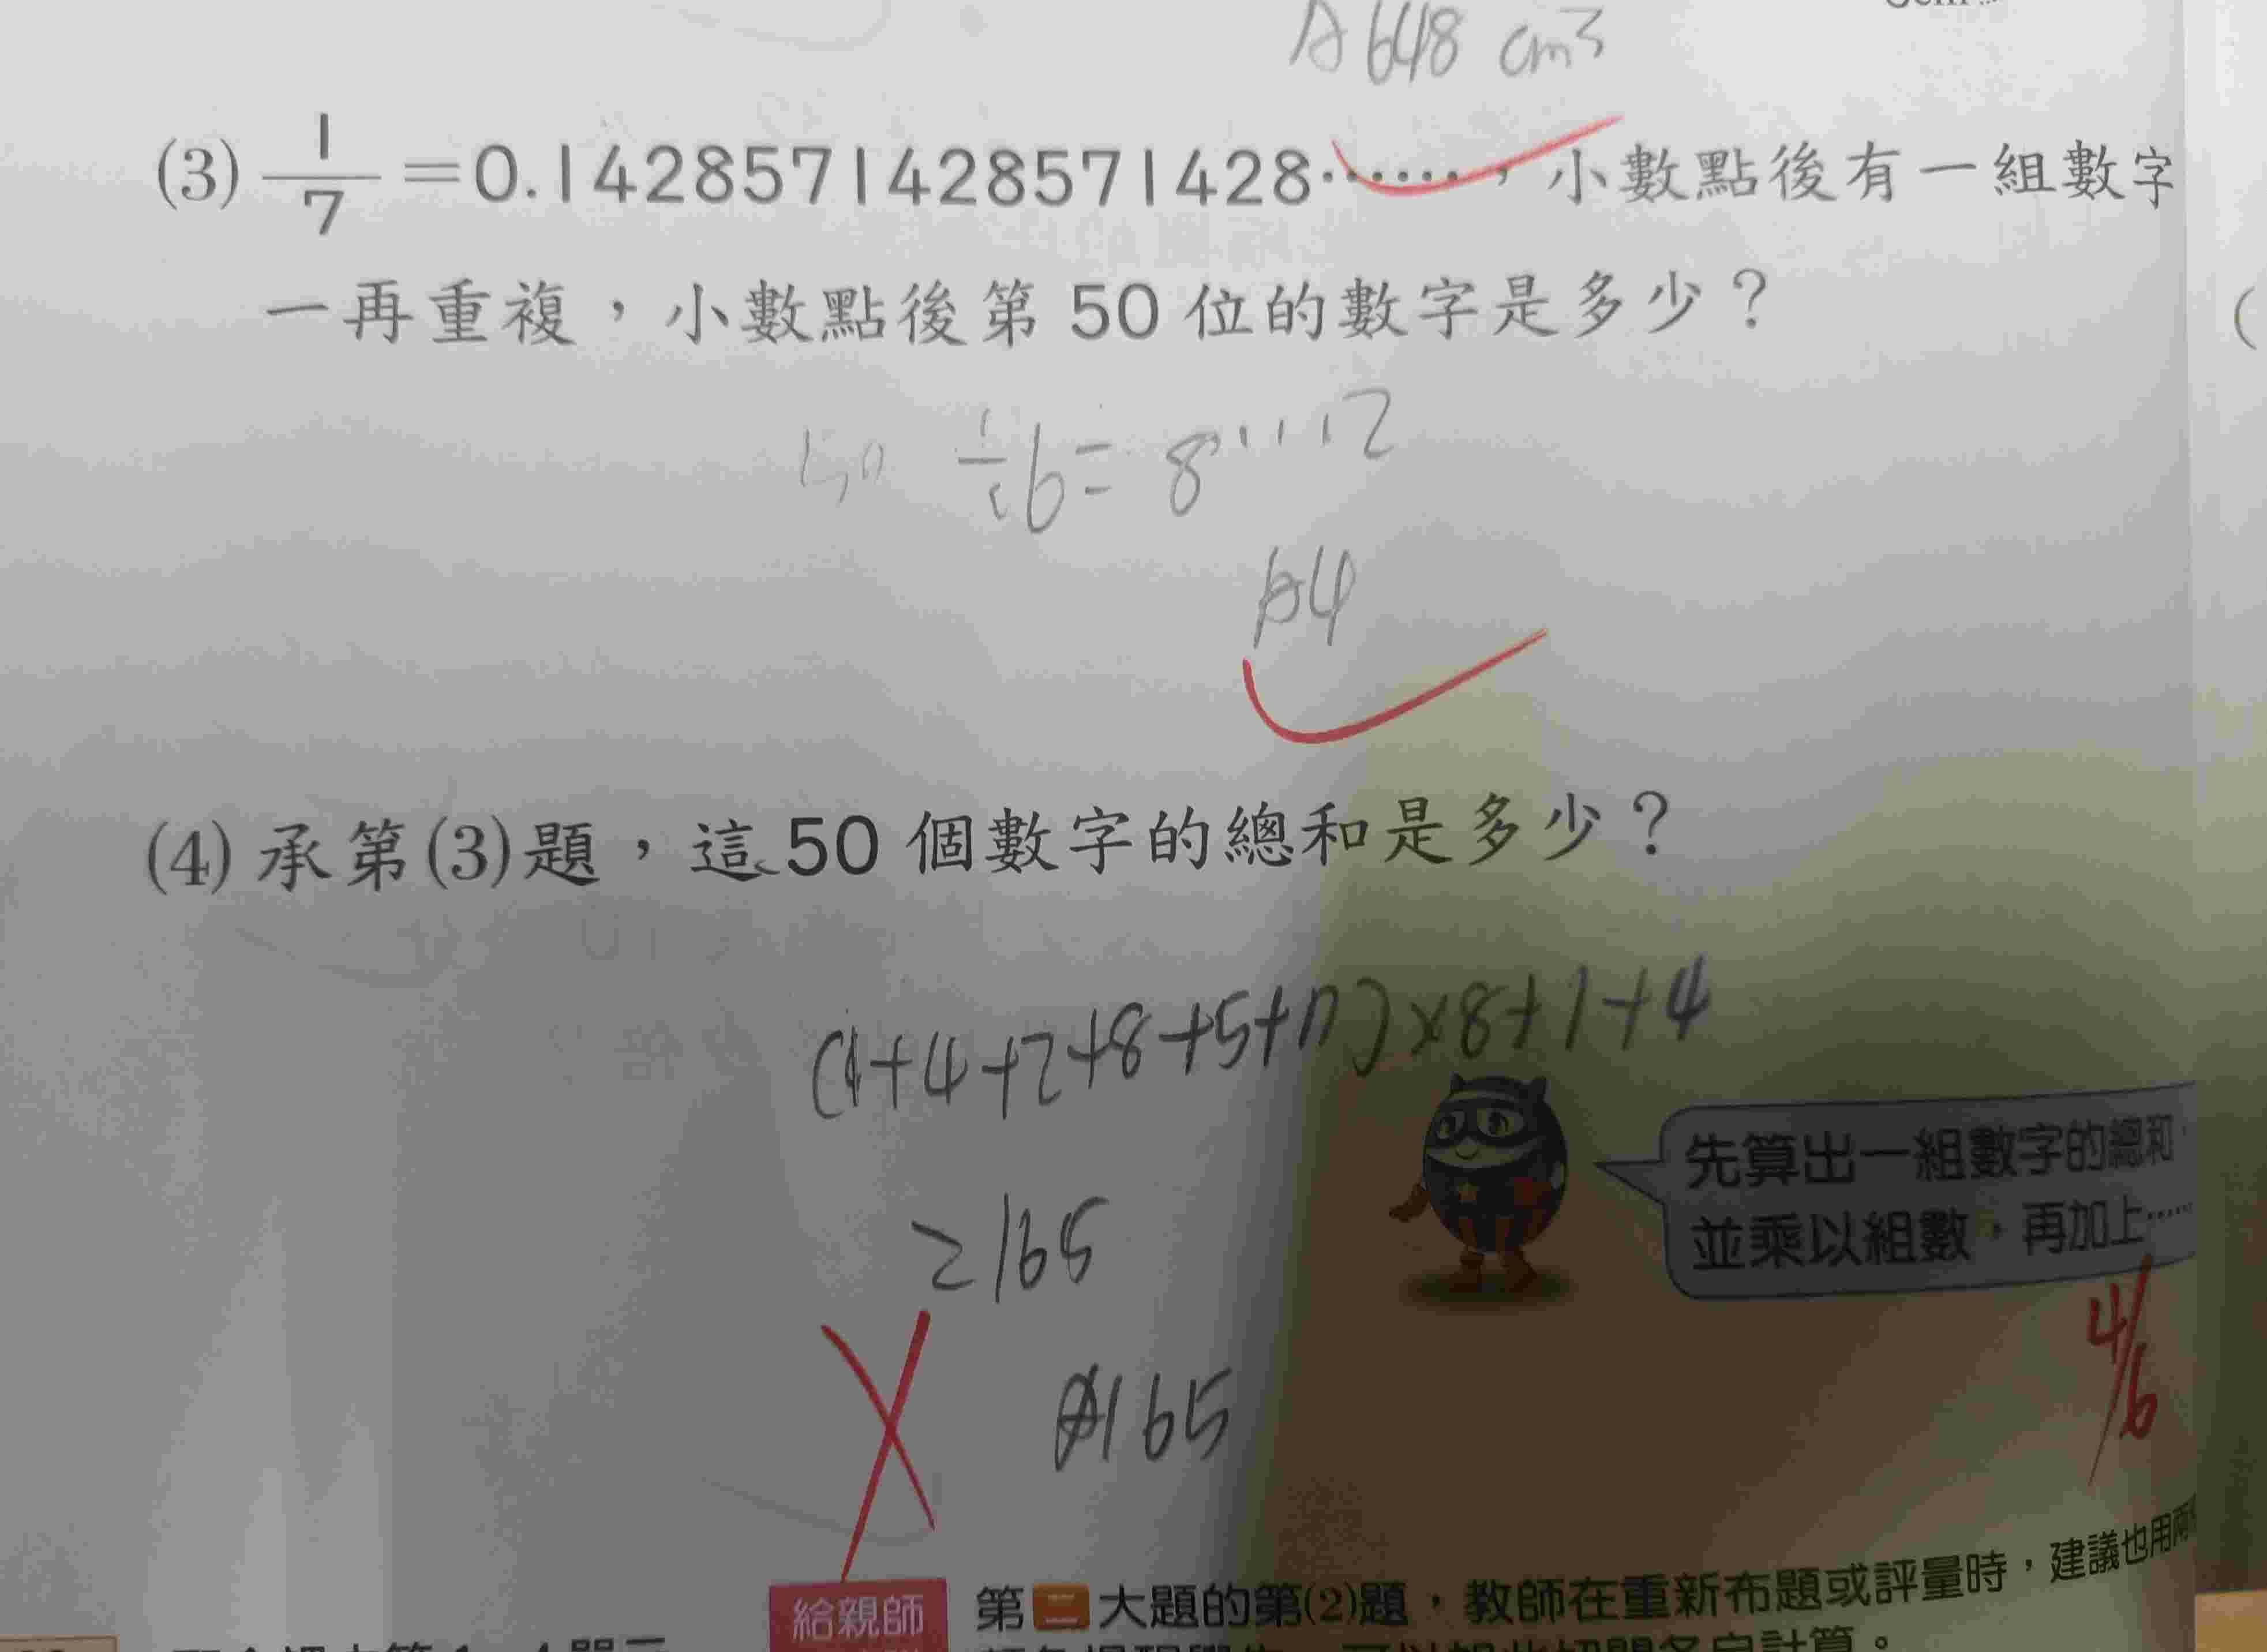 A 648 cm³
(3) 1/7 =0.1428571428571428……，小數點後有一組數字
一再重複，小數點後第 50 位的數字是多少？
50 ÷6= 8……2
A4
(4) 承第(3)題，這 50 個數字的總和是多少？
(1+4+2+8+5+7)×8+1+4
先算出一組數字的總和，
並乘以組數，再加上……
=165
A165
4/6
給親師
第二大題的第(2)題，教師在重新布題或評量時，建議也用兩